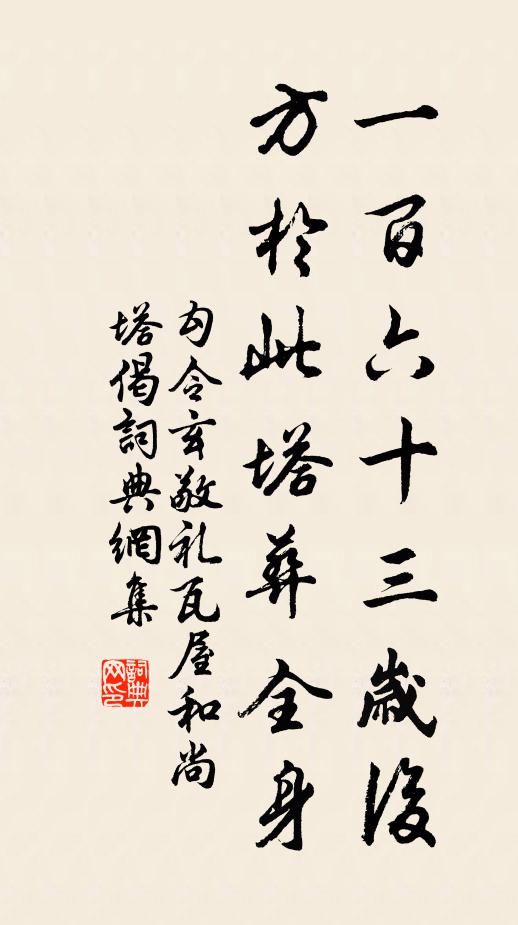 一百六十三歲後
方於此塔葬全身
句令玄敬礼瓦屋和尚
塔偈詞典網集
詞典网印